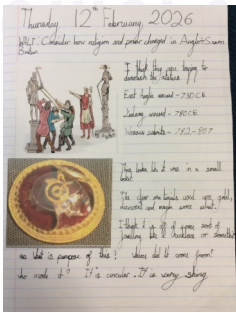 Thursday 12th February, 2026
WALT: Consider how religion and power changed in Anglo-Saxon Britain
I think they are trying to demolish the statue
East Anglia around - 730 C.E.
around - 780 C.E.
Wessex - 782 - 807
This looks like it was in a small
The clear materials used are, gold, diamond and maybe some
I think it is off of some sort of jewellery like a necklace or something
What is purpose of this? Where did it come from?
who made it? It's circular. It is very shiny